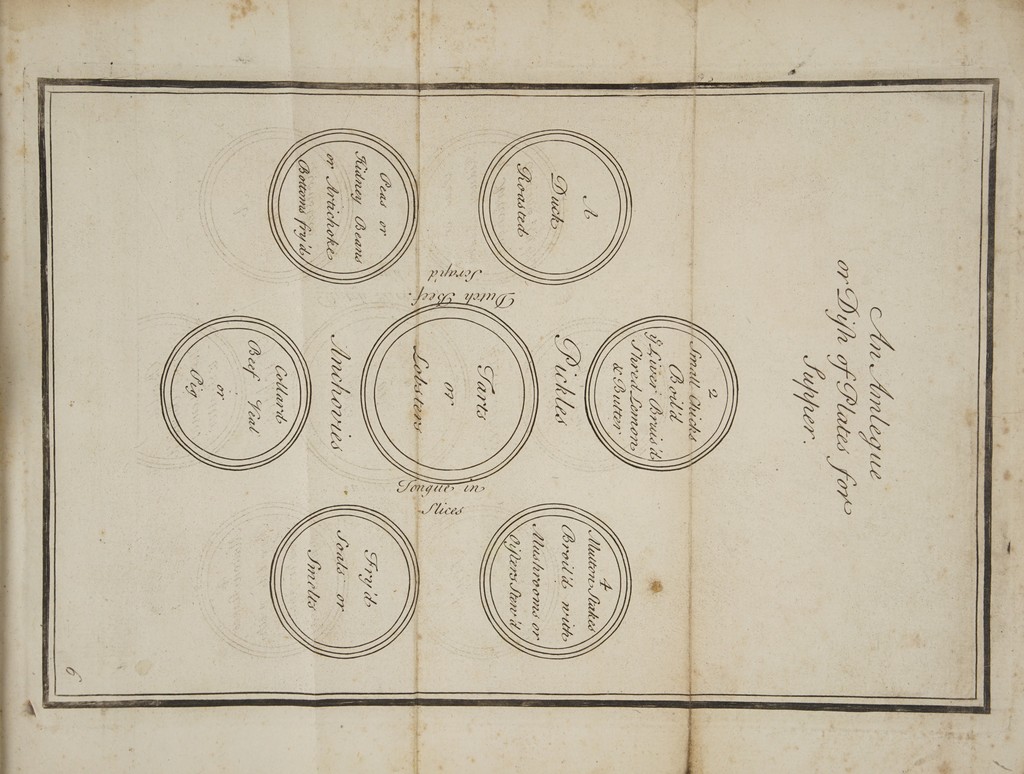 An Amlegue
or Dish of Plates for
Supper.
2
Small Chicks
Boil'd
ye Liver Bruis'd
Shred Lemon
& Butter
A
Duck
Roasted
4
Mutton Stakes
Broil'd with
Mushrooms or
Oisters Stew'd
Pickles
Dutch Beef
Scrap'd
Tarts
or
Lobsters
Tongue in
Slices
Peas or
Kidney Beans
or Artichoke
Bottoms fry'd
Anchovies
Fry'd
Soals or
Smelts
Collard
Beef Veal
or
Pig
6